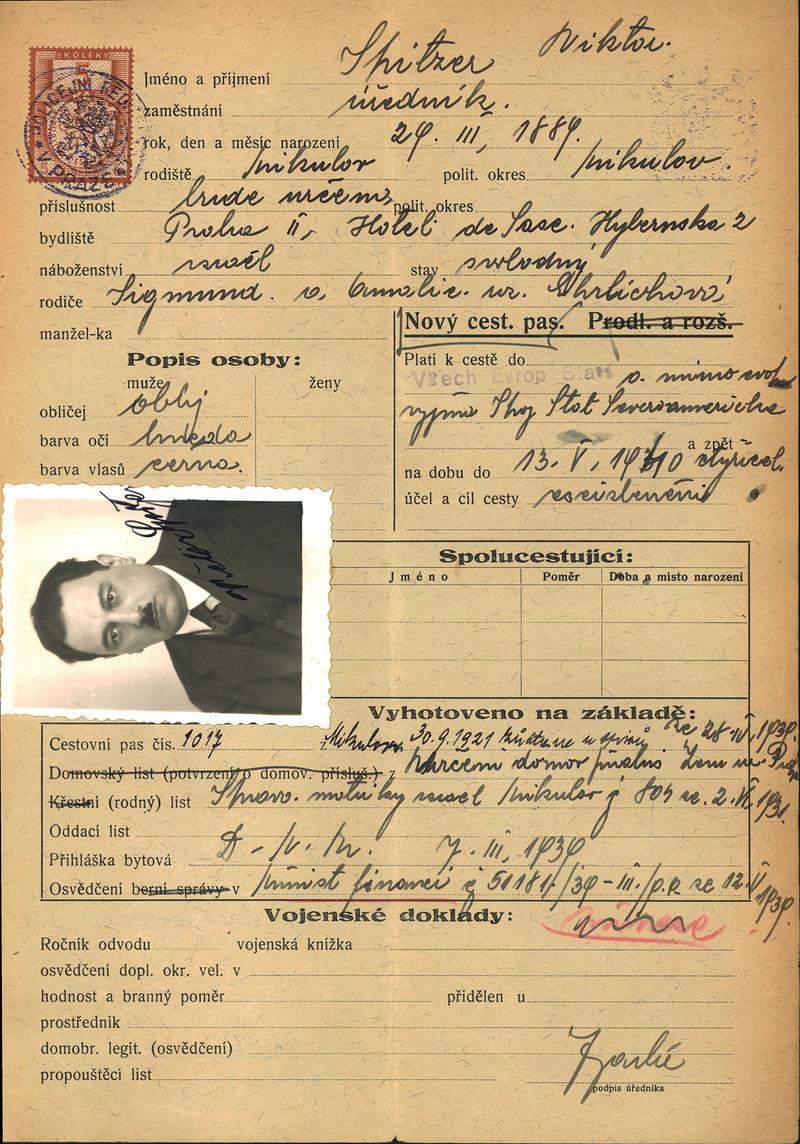 KOLEK
5
Jméno a příjmení Spitzer Viktor.
zaměstnání úředník.
rok, den a měsíc narození 29. III, 1889.
rodiště Mikulov polit. okres Mikulov.
příslušnost bude určena polit. okres
bydliště Praha II, Hotel de Saxe. Hybernska 2
náboženství israél stav svobodný
rodiče Sigmund. a. Amalie. roz. Ehrlichová
manžel-ka
Nový cest. pas. Prodl. a rozš.
Popis osoby:
Platí k cestě do
Všech Evrop Stát a. mimo evrop
muže ženy
obličej oblý
vyjma Stát Severoamerické
barva očí hněda
a zpět
barva vlasů černa.
na dobu do 13. V, 1940 čtyřicet.
účel a cíl cesty
Spolucestující:
Jméno Poměr Doba a místo narození
Vyhotoveno na základě:
Cestovní pas čís. 1017 z Mikulova 30.9.1921 ze 28. 1939.
Domovský list (potvrzení o domov. přísluš.) z
Křestní (rodný) list matriky israel Mikulov č 809 ze. 2. VI.
Oddací list
Přihláška bytová 7. III, 1939
Osvědčení berní správy v Minist financí č 51181/39-III./ ze 12. V 1939.
Vojenské doklady:
Ročník odvodu vojenská knížka
osvědčení dopl. okr. vel. v
hodnost a branný poměr přidělen u
prostředník
domobr. legit. (osvědčení)
propouštěcí list
podpis úředníka